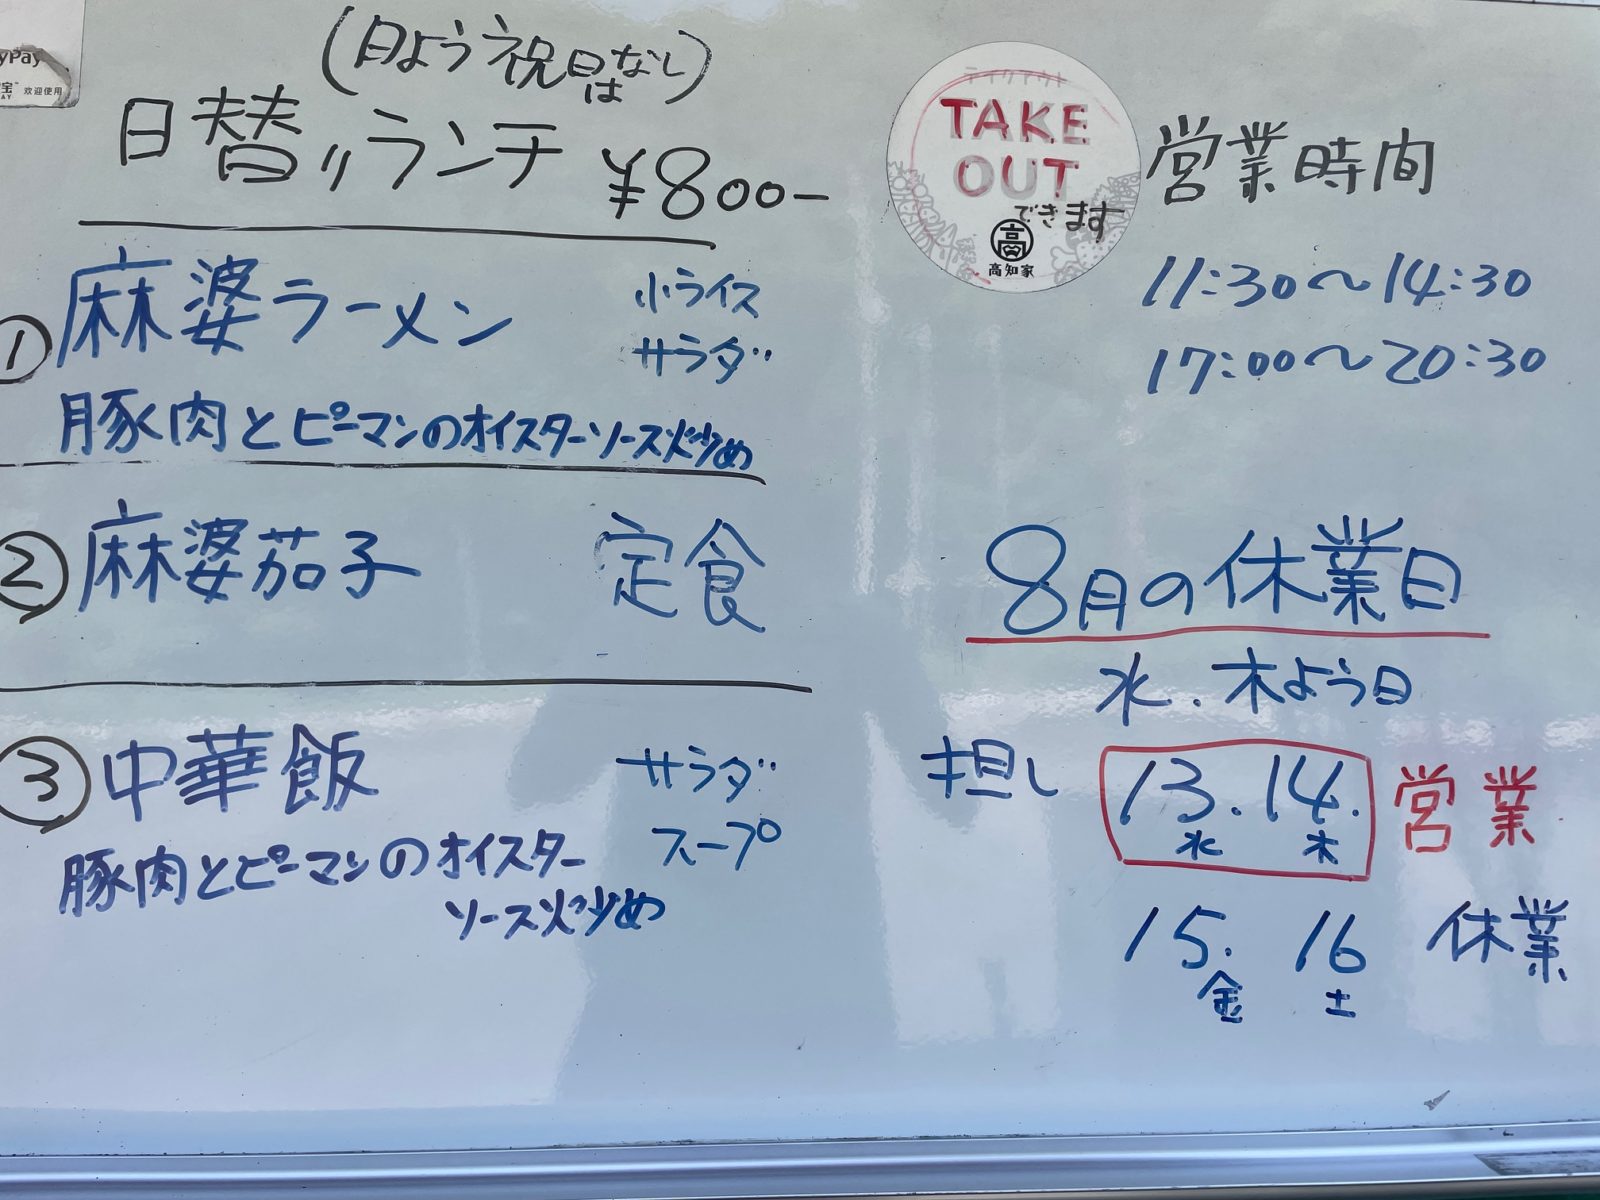 yPay
宝
AY 欢迎使用
(日よう祝日はなし)
日替りランチ ¥800-
① 麻婆ラーメン 小ライス
サラダ
豚肉とピーマンのオイスターソース炒め
② 麻婆茄子 定食
③ 中華飯 サラダ
スープ
豚肉とピーマンのオイスター
ソース炒め
テイクアウト
TAKE
OUT
できます
高
高知家
営業時間
11:30〜14:30
17:00〜20:30
8月の休業日
水.木よう日
担し 13.14. 営業
水 木
15. 16 休業
金 土